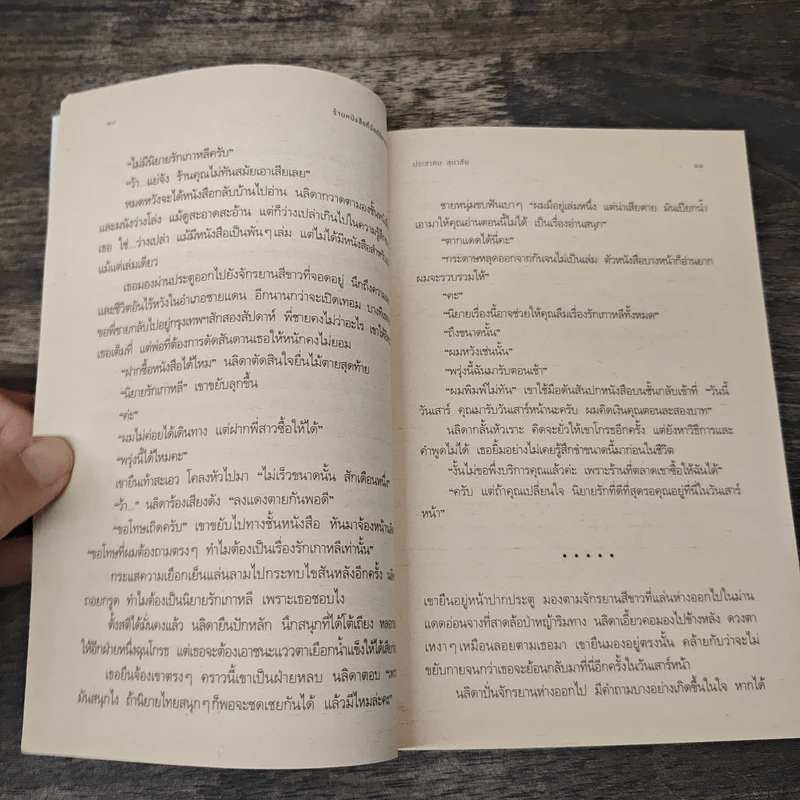 ๑๐
ร้านหนังสือที่มี
“ไม่มีนิยายรักเกาหลีครับ”
“ว้า...แย่จัง ร้านคุณไม่ทันสมัยเอาเสียเลย”
หมดหวังจะได้หนังสือกลับบ้านไปอ่าน นลิตากวาดตามองชั้นหนังสือ
และผนังว่างโล่ง แม้ดูสะอาดสะอ้าน แต่ก็ว่างเปล่าเกินไปในความรู้สึก
เธอ ใช่...ว่างเปล่า แม้มีหนังสือเป็นพันๆ เล่ม แต่ไม่ได้มีหนังสือสำหรับ
แม้แต่เล่มเดียว
เธอมองผ่านประตูออกไปยังจักรยานสีขาวที่จอดอยู่ นึกถึงความ
และชีวิตอันไร้หวังในอำเภอชายแดน อีกนานกว่าจะเปิดเทอม บางที
ขอพี่ชายกลับไปอยู่กรุงเทพฯสักสองสัปดาห์ พี่ชายคงไม่ว่าอะไร เขาให้
เธอเต็มที่ แต่พ่อที่ต้องการดัดสันดานเธอให้หนักคงไม่ยอม
“ฝากซื้อหนังสือได้ไหม” นลิตาตัดสินใจยื่นไม้ตายสุดท้าย
“นิยายรักเกาหลี” เขาขยับลุกขึ้น
“ค่ะ”
“ผมไม่ค่อยได้เดินทาง แต่ฝากพี่สาวซื้อให้ได้”
“พรุ่งนี้ได้ไหมคะ”
เขายืนเท้าสะเอว โคลงหัวไปมา “ไม่เร็วขนาดนั้น สักเดือนหนึ่ง”
“ว้า...” นลิตาร้องเสียงดัง “ลงแดงตายกันพอดี”
“ขอโทษเถิดครับ” เขาขยับไปทางชั้นหนังสือ หันมาจ้องหน้า
“ขอโทษที่ผมต้องถามตรงๆ ทำไมต้องเป็นเรื่องรักเกาหลีเท่านั้น”
กระแสความเยือกเย็นแล่นลามไปกระทบไขสันหลังอีกครั้ง
ถอยกรูด ทำไมต้องเป็นนิยายรักเกาหลี เพราะเธอชอบไง
ตั้งสติได้มั่นคงแล้ว นลิตายืนปักหลัก นึกสนุกที่ได้โต้เถียง
ให้อีกฝ่ายหนึ่งฉุนโกรธ แต่เธอจะต้องเอาชนะแววตาเยือกน้ำแข็งให้ได้
เธอยืนจ้องเขาตรงๆ คราวนี้เขาเป็นฝ่ายหลบ นลิตาตอบ
มันสนุกไง ถ้านิยายไทยสนุกๆ ก็พอจะชดเชยกันได้ แล้วมีไหมล่ะคะ”
ประชาคม ลุนาชัย
๑๑
ชายหนุ่มขบฟันเบาๆ “ผมมีอยู่เล่มหนึ่ง แต่น่าเสียดาย มันเปียกน้ำ
เอามาให้คุณอ่านตอนนี้ไม่ได้ เป็นเรื่องอ่านสนุก”
“ตากแดดได้นี่คะ”
“กระดาษหลุดออกจากกันจนไม่เป็นเล่ม ตัวหนังสือบางหน้าก็อ่านยาก
ผมจะรวบรวมให้”
“คะ”
“นิยายเรื่องนี้อาจช่วยให้คุณลืมเรื่องรักเกาหลีทั้งหมด”
“ถึงขนาดนั้น”
“ผมหวังเช่นนั้น”
“พรุ่งนี้ฉันมารับตอนเช้า”
“ผมพิมพ์ไม่ทัน” เขาใช้มือดันสันปกหนังสือบนชั้นกลับเข้าที่ “วันนี้
วันเสาร์ คุณมารับวันเสาร์หน้านะครับ ผมคิดเงินคุณตอนละสองบาท”
นลิตากลั้นหัวเราะ คิดจะยั่วให้เขาโกรธอีกครั้ง แต่ยังหาวิธีการและ
คำพูดไม่ได้ เธอยิ้มอย่างไม่เคยรู้สึกขำขนาดนี้มาก่อนในชีวิต
“งั้นไม่ขอพึ่งบริการคุณแล้วค่ะ เพราะร้านที่ตลาดเขาซื้อให้ฉันได้”
“ครับ แต่ถ้าคุณเปลี่ยนใจ นิยายรักที่ดีที่สุดรอคุณอยู่ที่นี่ในวันเสาร์
หน้า”
• • • • •
เขายืนอยู่หน้าปากประตู มองตามจักรยานสีขาวที่แล่นห่างออกไปในม่าน
แดดอ่อนจางที่สาดล้อป่าหญ้าริมทาง นลิตาเอี้ยวคอมองไปข้างหลัง ดวงตา
เหงาๆ เหมือนลอยตามเธอมา เขายืนมองอยู่ตรงนั้น คล้ายกับว่าจะไม่
ขยับกายจนกว่าเธอจะย้อนกลับมาที่นี่อีกครั้งในวันเสาร์หน้า
นลิตาปั่นจักรยานห่างออกไป มีคำถามบางอย่างเกิดขึ้นในใจ หากได้